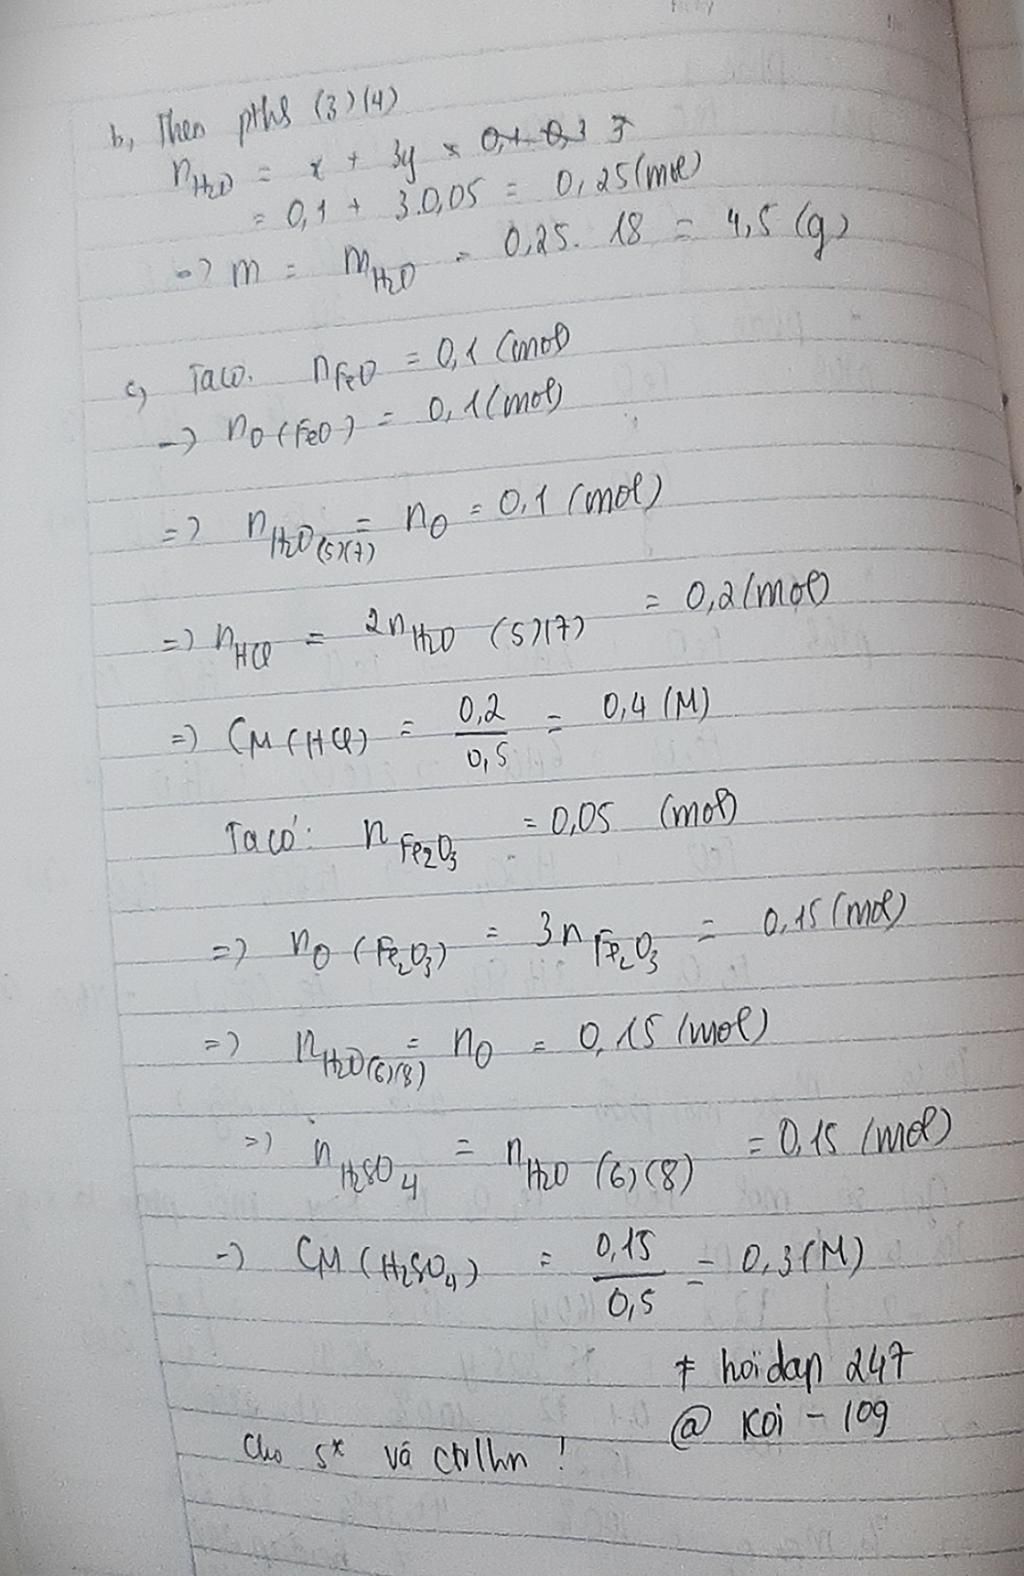 b, Theo pthh (3)(4)
nH2O = x + 3y
= 0,1 + 3.0,05 = 0,25 (mol)
=> m = mH2O = 0,25. 18 = 4,5 (g)
c, Ta có. nFeO = 0,1 (mol)
=> nO (FeO) = 0,1 (mol)
=> nH2O (5)(7) = nO = 0,1 (mol)
=> nHCl = 2nH2O (5)(7) = 0,2 (mol)
=> CM (HCl) = 0,2/0,5 = 0,4 (M)
Ta có: nFe2O3 = 0,05 (mol)
=> nO (Fe2O3) = 3nFe2O3 = 0,15 (mol)
=> nH2O (6)(8) = nO = 0,15 (mol)
=> nH2SO4 = nH2O (6)(8) = 0,15 (mol)
=> CM (H2SO4) = 0,15/0,5 = 0,3 (M)
# hoidap 247
@ Koi - 109
Cho 5* và ctrlhn !